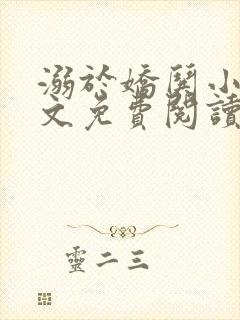 溺於嬌鬟小
文免費閱讀
靈二三